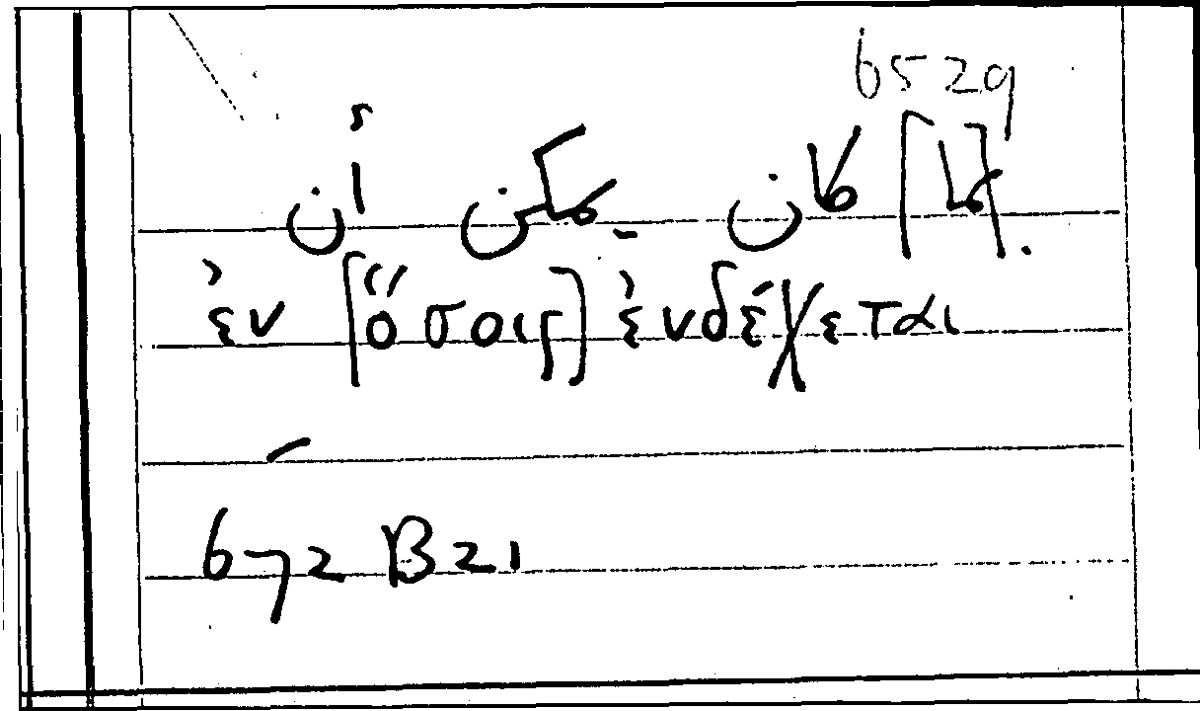 6529
[ما] كان يمكن أن
ἐν [ὅσοις] ἐνδέχεται
672 B 21